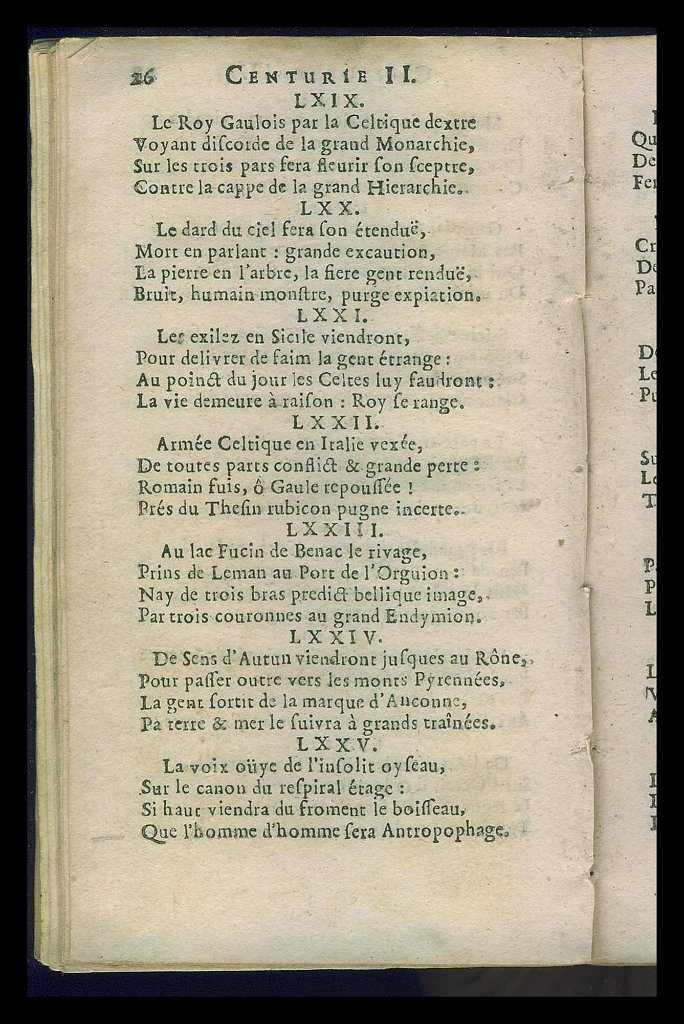 26 CENTURIE II.
LXIX.
Le Roy Gaulois par la Celtique dextre
Voyant diſcorde de la grand Monarchie,
Sur les trois pars fera fleurir ſon ſceptre,
Contre la cappe de la grand Hierarchie.
LXX.
Le dard du ciel fera ſon étenduë,
Mort en parlant : grande excaution,
La pierre en l'arbre, la fiere gent renduë,
Bruit, humain monſtre, purge expiation.
LXXI.
Les exilez en Sicile viendront,
Pour delivrer de faim la gent étrange :
Au poinct du jour les Celtes luy faudront :
La vie demeure à raiſon : Roy ſe range.
LXXII.
Armée Celtique en Italie vexée,
De toutes parts conflict & grande perte :
Romain fuis, ô Gaule repouſſée !
Prés du Theſin rubicon pugne incerte.
LXXIII.
Au lac Fucin de Benac le rivage,
Prins de Leman au Port de l'Orguion :
Nay de trois bras predict bellique image,
Par trois couronnes au grand Endymion.
LXXIV.
De Sens d'Autun viendront juſques au Rône,
Pour paſſer outre vers les monts Pyrennées,
La gent ſortit de la marque d'Anconne,
Pa terre & mer le ſuivra à grands traînées.
LXXV.
La voix oüye de l'inſolit oyſeau,
Sur le canon du reſpiral étage :
Si haut viendra du froment le boiſſeau,
Que l'homme d'homme ſera Antropophage.
Qu
De
Fer
Cr
De
Pa
De
Le
Pu
Su
Le
T
P
P
L
L
V
A